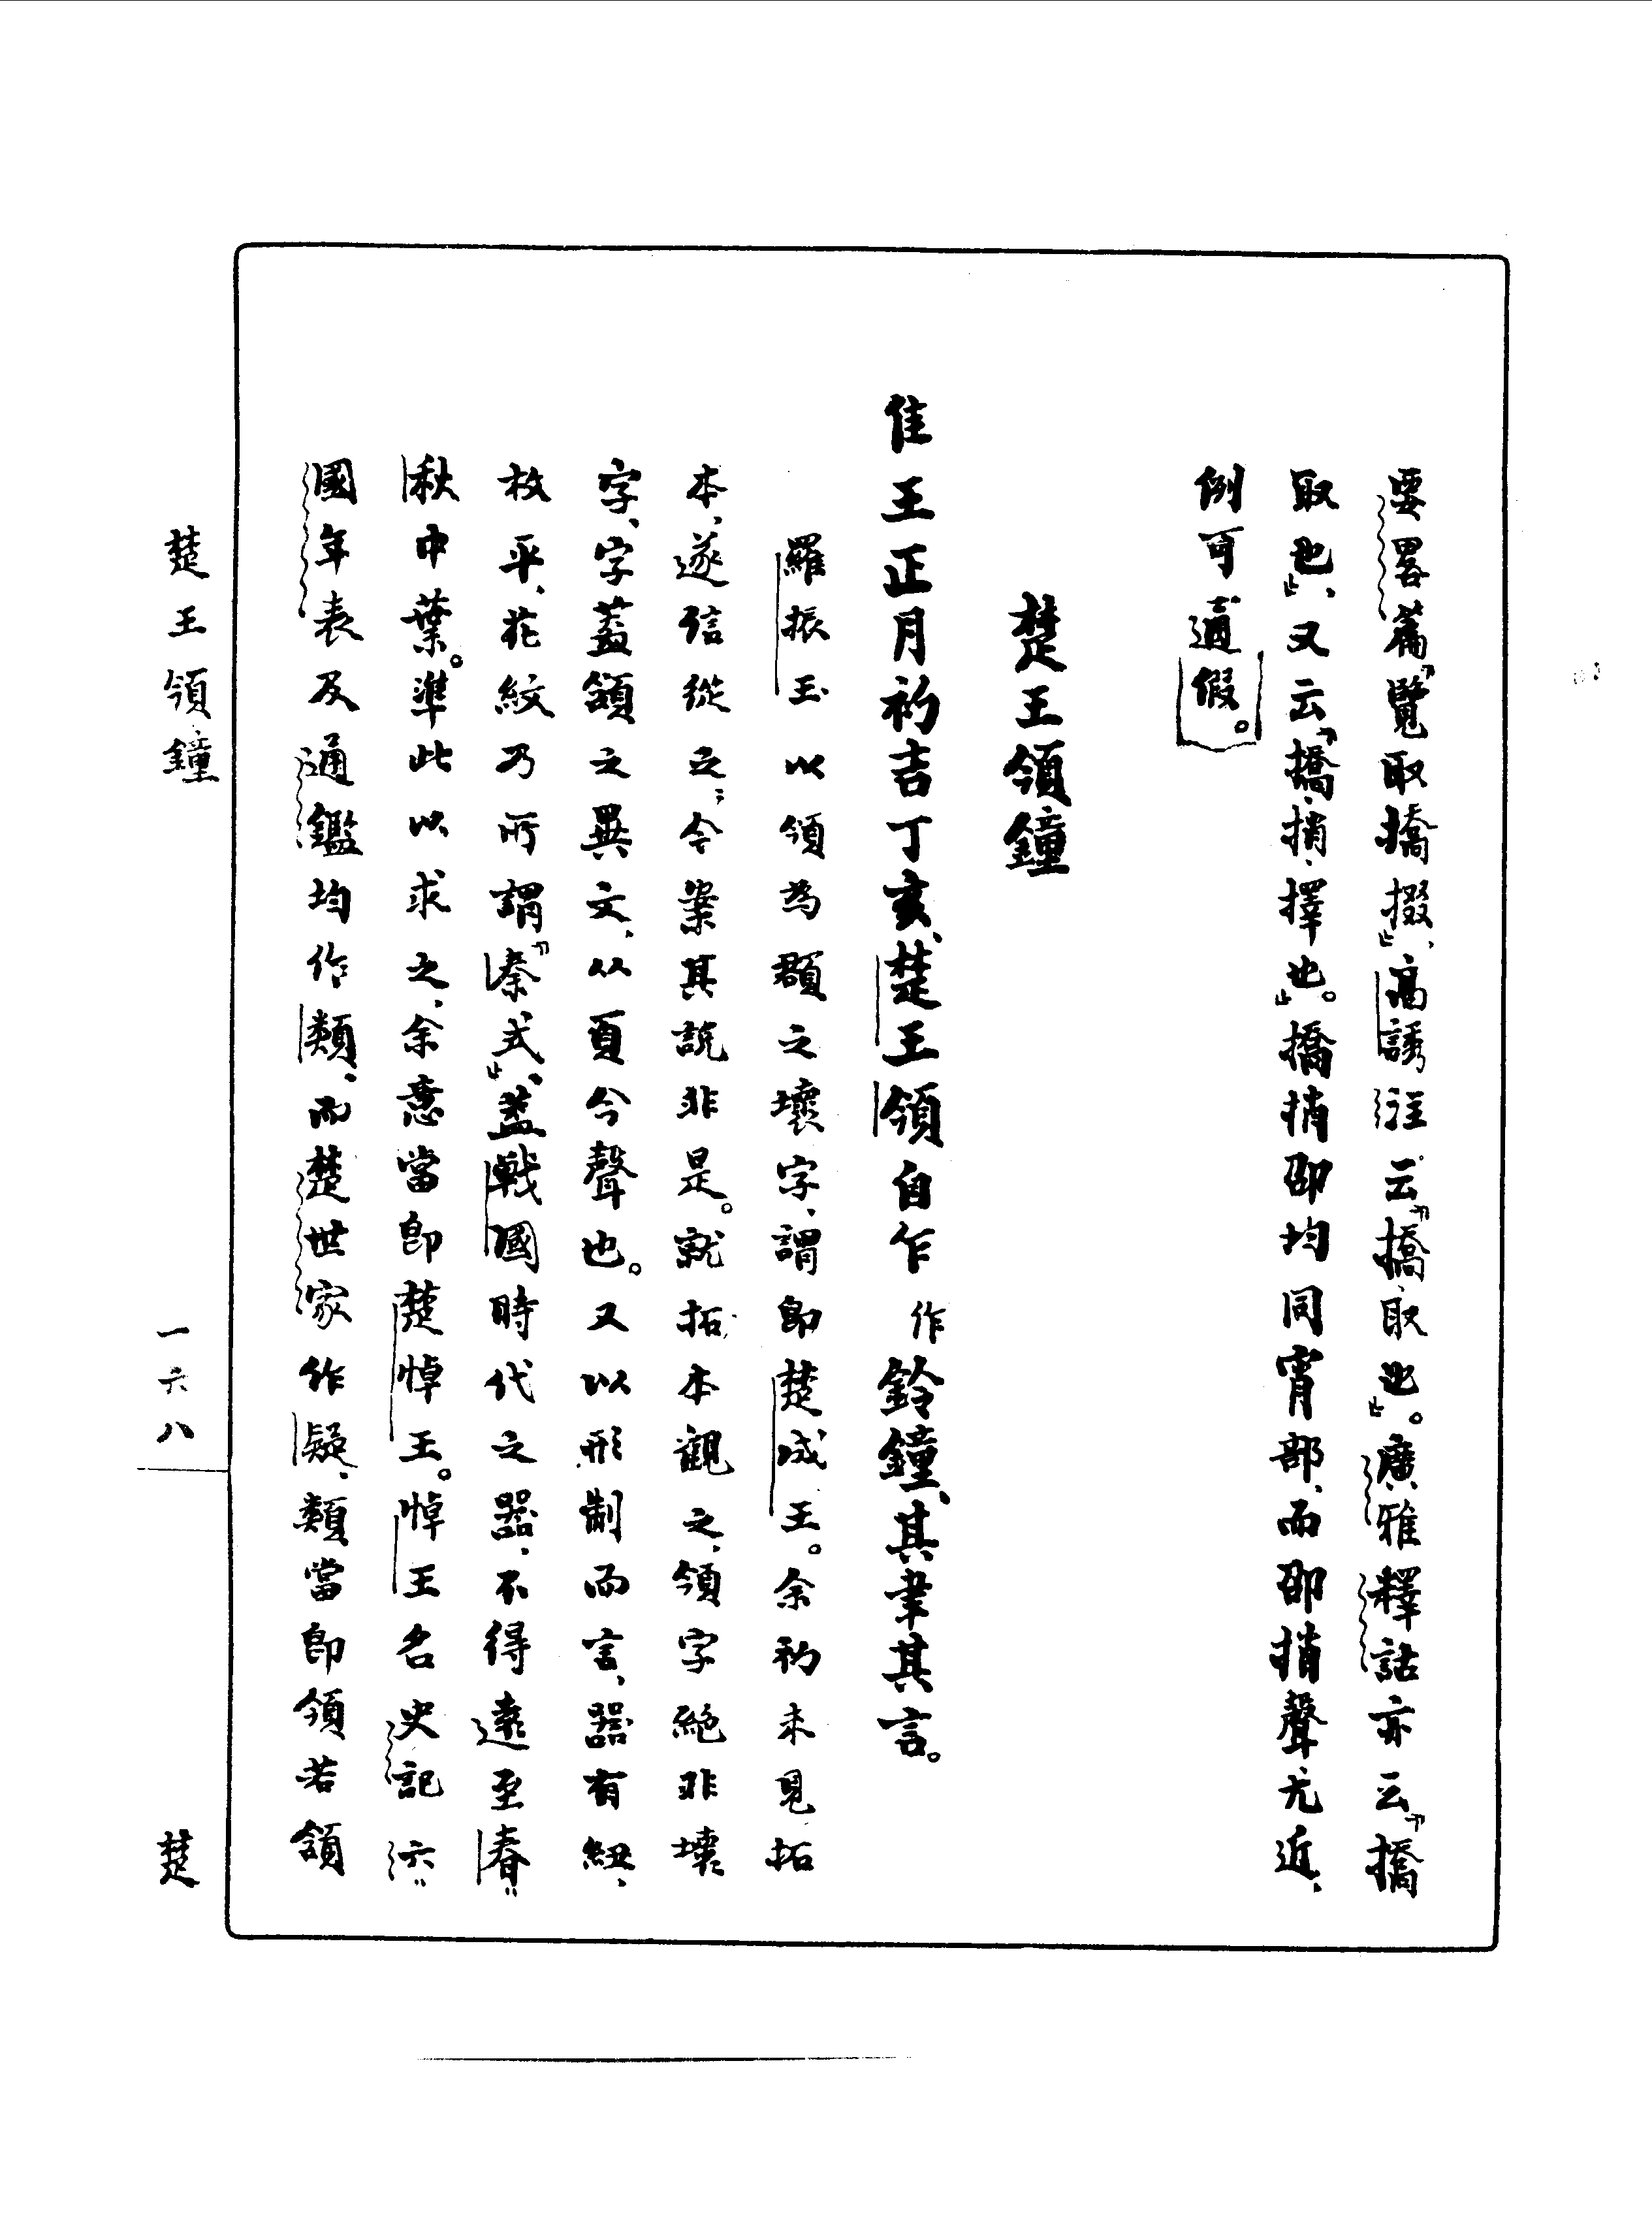 要畧篇「覽取撟掇」、高誘注云「撟取也」。廣雅釋詁亦云「撟
取也」、又云「撟捎擇也」。撟捎卲均同宵部、而卲捎聲尤近、
例可通假。
楚王領鐘
隹王正月初吉丁亥、楚王領自乍作鈴鐘、其聿其言。
羅振玉以領為頵之壞字、謂即楚成王。余初未見拓
本、遂信從之、今案其說非是。就拓本觀之、領字絕非壞
字、字蓋頷之異文、从頁今聲也。又以形制而言、器有紐、
枚平、花紋乃所謂「秦式」、蓋戰國時代之器、不得遠至春
秋中葉。準此以求之、余意當即楚悼王。悼王名史記六
國年表及通鑑均作類、而楚世家作疑、類當即領若頷
楚王領鐘
一六八
楚